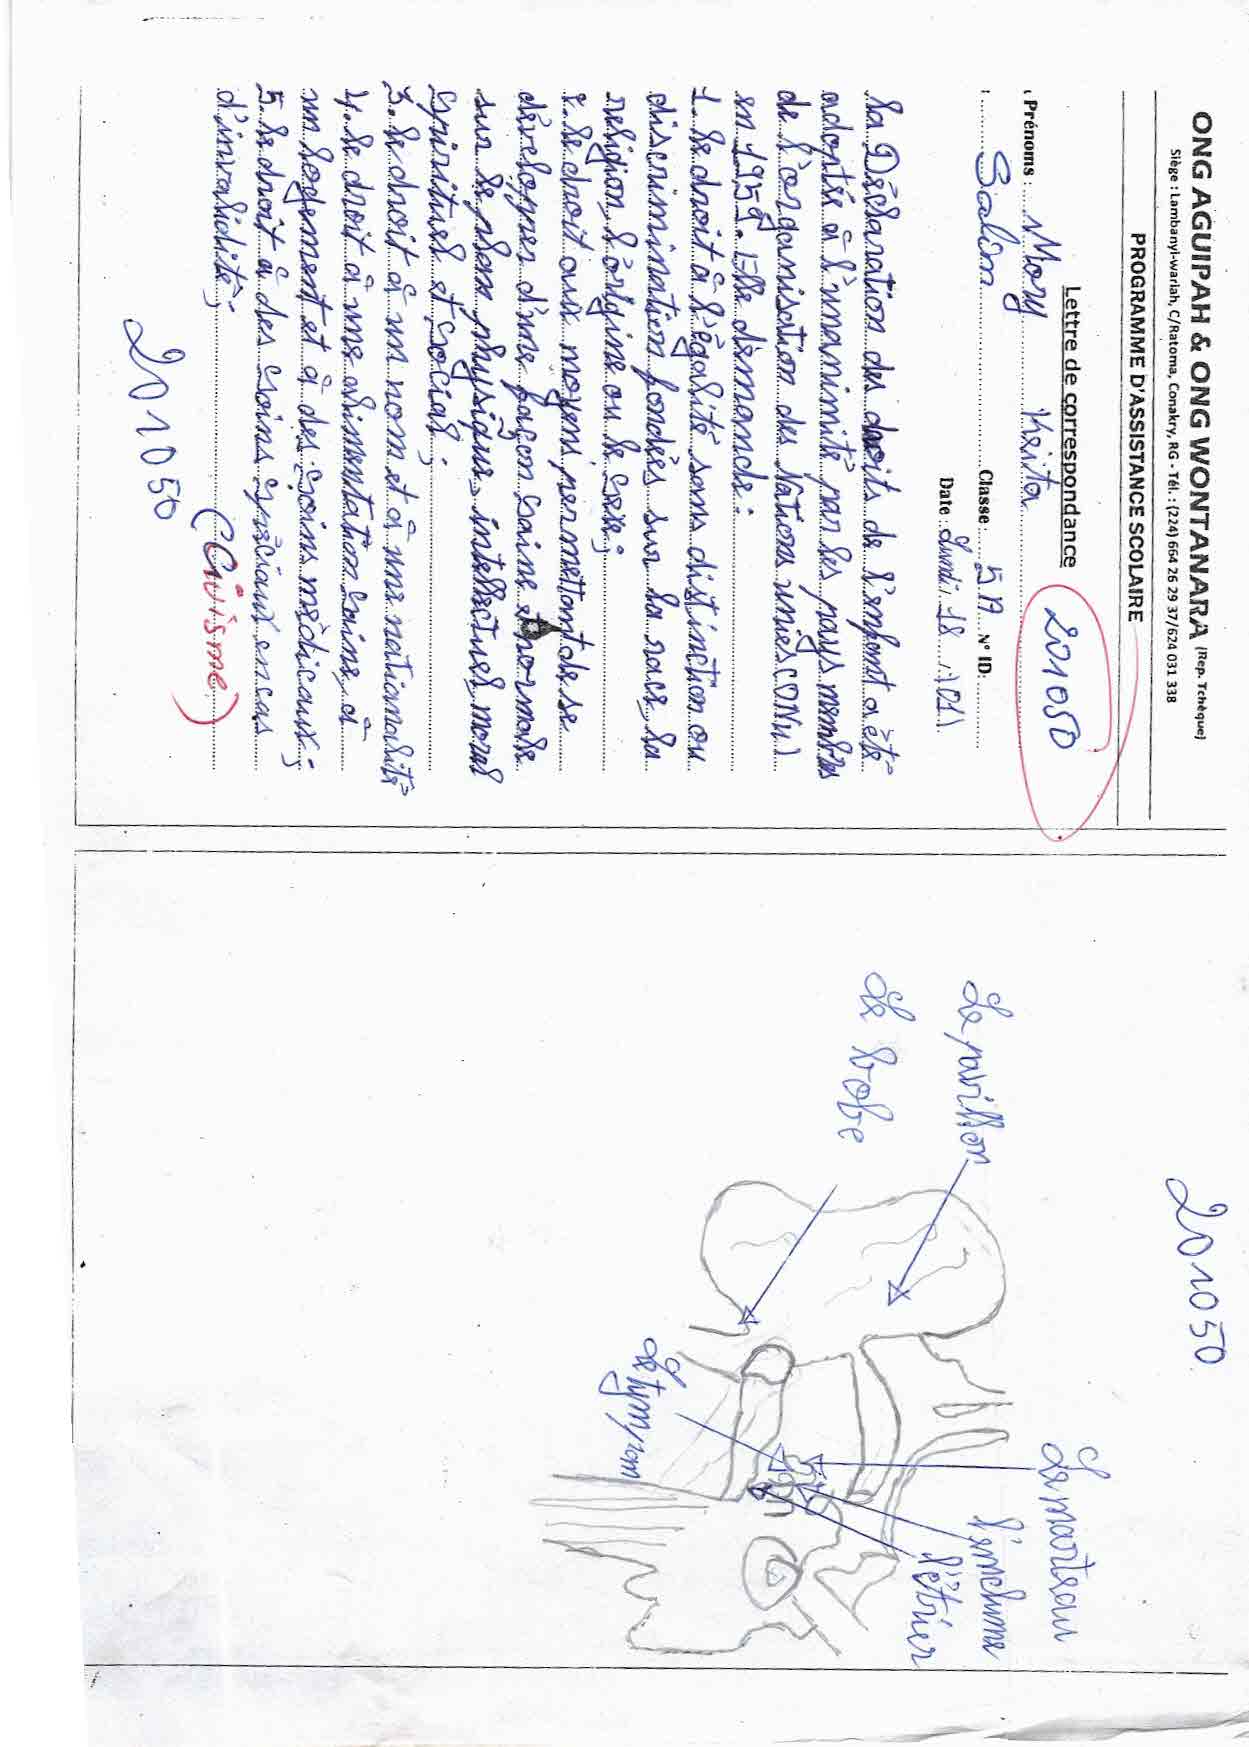 ONG AGUIPAH & ONG WONTANARA (Rep. Tchèque)
Siège : Lambanyi-wariah, C/Ratoma, Conakry, RG - Tél. : (224) 664 26 29 37/624 031 338
PROGRAMME D'ASSISTANCE SCOLAIRE
Lettre de correspondance
201050
Prénoms : Mory Keita
: Salim Classe : 5 A N° ID
Date : Lundi 18
La Déclaration des droits de l'enfant a été
adoptée à l'unanimité par les pays membres
de l'organisation des Nations unies (ONU)
en 1959. Elle demande :
1. Le droit à l'égalité sans distinction ou
discrimination fondées sur la race, la
religion, l'origine ou le sexe ;
2. Le droit aux moyens permettant de se
développer d'une façon saine et normale
sur le plan physique, intellectuel, moral
spirituel et social ;
3. Le droit à un nom et à une nationalité
4. Le droit à une alimentation saine, à
un logement et à des soins médicaux ;
5. Le droit à des soins spéciaux en cas
d'invalidité ;
(Civisme)
201050
201050
Le pavillon
Le lobe
Le tympan
Le marteau
l'enclume
l'étrier